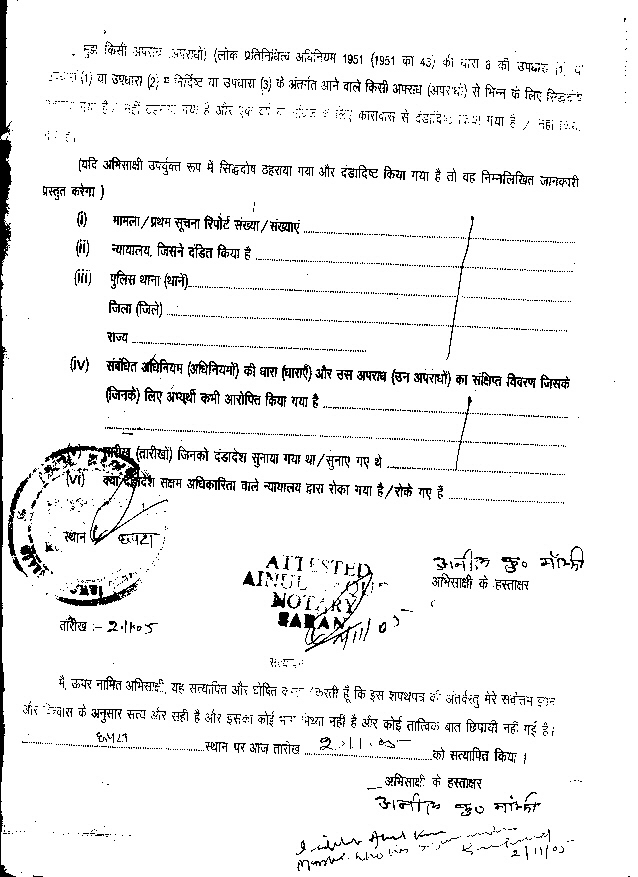 मुझे किसी अपराध (अपराधों) (लोक प्रतिनिधित्व अधिनियम 1951 (1951 का 43) की धारा 8 की उपधारा (1) या
उपधारा (1) या उपधारा (2) में निर्दिष्ट या उपधारा (3) के अंतर्गत आने वाले किसी अपराध (अपराधों) से भिन्न के लिए सिद्धदोष
गया है / नहीं ठहराया गया है और एक वर्ष या लिए कारावास से दंडादिष्ट किया गया है / नहीं किया
गया है।
(यदि अभिसाक्षी उपर्युक्त रूप में सिद्धदोष ठहराया गया और दंडादिष्ट किया गया है तो वह निम्नलिखित जानकारी
प्रस्तुत करेगा )
(i) मामला/प्रथम सूचना रिपोर्ट संख्या/संख्याएं
(ii) न्यायालय, जिसने दंडित किया है
(iii) पुलिस थाना (थाने)
जिला (जिले)
राज्य
(iv) संबंधित अधिनियम (अधिनियमों) की धारा (धाराएँ) और उस अपराध (उन अपराधों) का संक्षिप्त विवरण जिसके
(जिनके) लिए अभ्यर्थी कभी आरोपित किया गया है
(v) तारीख (तारीखों) जिनको दंडादेश सुनाया गया था/सुनाए गए थे
(vi) क्या दंडादेश सक्षम अधिकारिता वाले न्यायालय द्वारा रोका गया है/रोके गए हैं
स्थान छपरा
ATTESTED
AINUL
NOTARY
SARAN
2/11/05
अनील कु० मांझी
अभिसाक्षी के हस्ताक्षर
तारीख :- 2.11.05
सत्यापन
मैं, ऊपर नामित अभिसाक्षी, यह सत्यापित और घोषित करता/करती हूँ कि इस शपथपत्र की अंतर्वस्तु मेरे सर्वोत्तम ज्ञान
और विश्वास के अनुसार सत्य और सही है और इसका कोई भाग मिथ्या नहीं है और कोई तात्विक बात छिपायी नहीं गई है।
छपरा स्थान पर आज तारीख 2.11.05 को सत्यापित किया।
अभिसाक्षी के हस्ताक्षर
अनील कु० मांझी
2/11/05